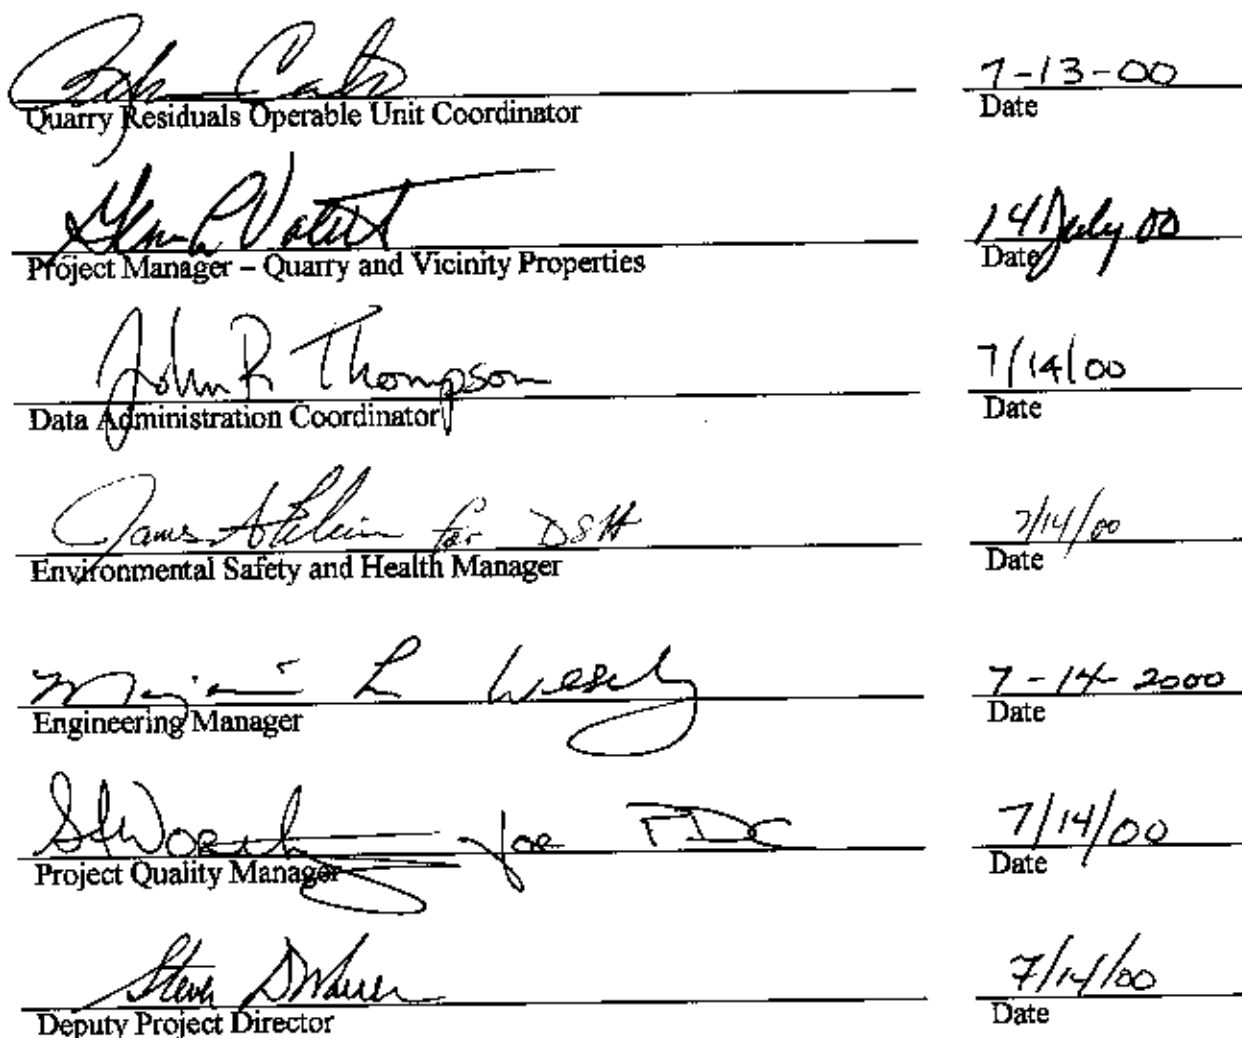 7-13-00
Quarry Residuals Operable Unit Coordinator Date
14 July 00
Project Manager – Quarry and Vicinity Properties Date
John R Thompson 7/14/00
Data Administration Coordinator Date
James for DSH 7/14/00
Environmental Safety and Health Manager Date
L 7-14-2000
Engineering Manager Date
7/14/00
Project Quality Manager Date
Steve 7/14/00
Deputy Project Director Date